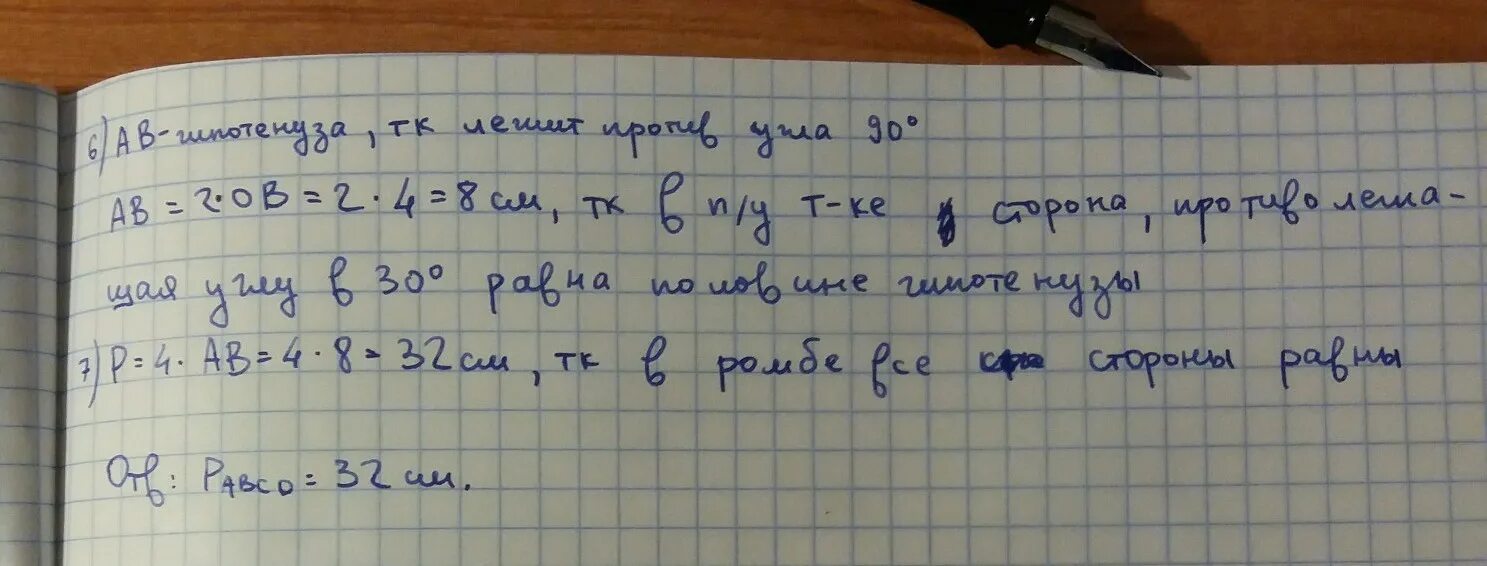 6) AB-гипотенуза, тк лежит против угла 90°
AB = 2·OB = 2 · 4 = 8 см, тк в п/у т-ке сторона, противолежа-
щая углу в 30° равна половине гипотенузы
7) P = 4 · AB = 4 · 8 = 32 см, тк в ромбе все стороны равны
Отв: PABCD = 32 см.